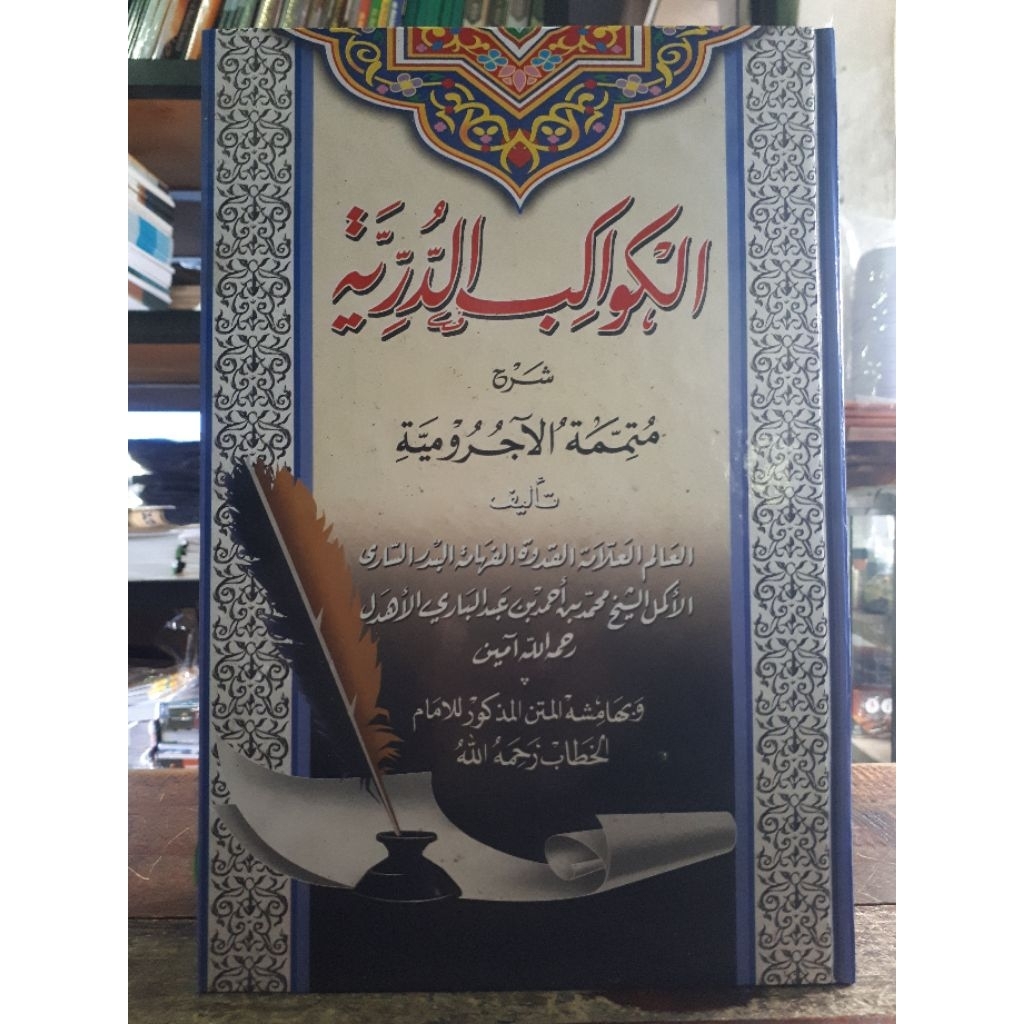 الكواكب الدُّرِّيَّة
شَرْح
مُتِمَّمَةُ الآجُرُوْمِيَّةِ
تأليف
العالم العلامة القدوة الفهامة البدر السارى
الأكمل الشيخ محمد بن أحمد بن عبد الباري الأهدل
رحمه الله آمين
وَبهَامِشه المتن المذكور للامام
الحَطاب رَحِمَهُ اللهُ